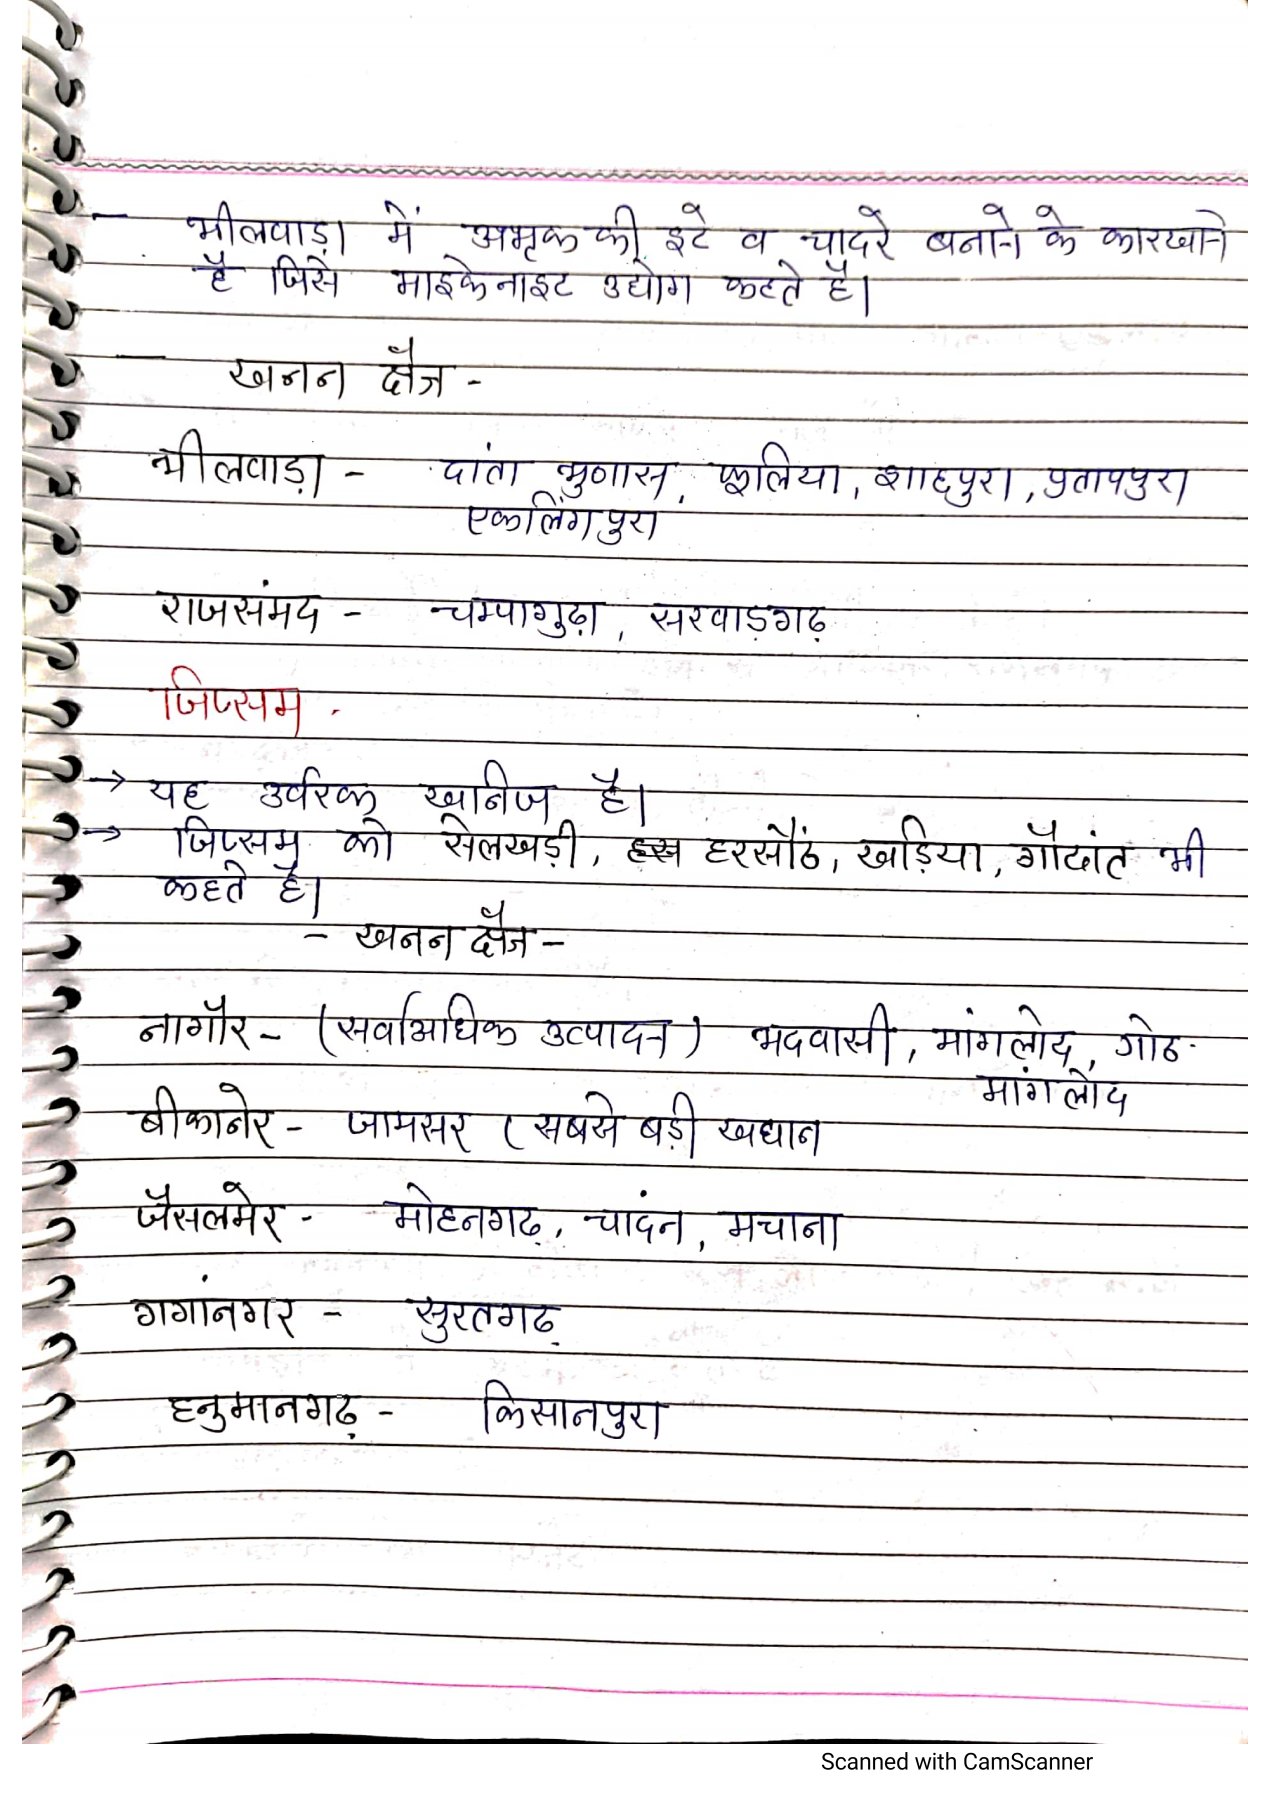 – भीलवाड़ा में अभृक की इटे व चादरे बनाने के कारखाने
है जिसे माइकेनाइट उद्योग कहते है।
– खनन क्षैत्र -
भीलवाड़ा - दांता भुणास, फूलिया, शाहपुरा, प्रतापपुरा
एकलिंगपुरा
राजसंमद - चम्पागुढ़ा, सरवाड़गढ़
जिप्सम .
→ यह उर्वरक खनिज है।
→ जिप्सम को सेलखड़ी, हरसौंठ, खड़िया, गौदांत भी
कहते है।
- खनन क्षैत्र -
नागौर - (सर्वाअधिक उत्पादन) भदवासी, मांगलोद, गोठ-
मांगलोद
बीकानेर - जामसर (सबसे बड़ी खधान
जैसलमेर - मोहनगढ़, चांदन, मचाना
गगांनगर - सुरतगढ़
हनुमानगढ़ - किसानपुरा
Scanned with CamScanner